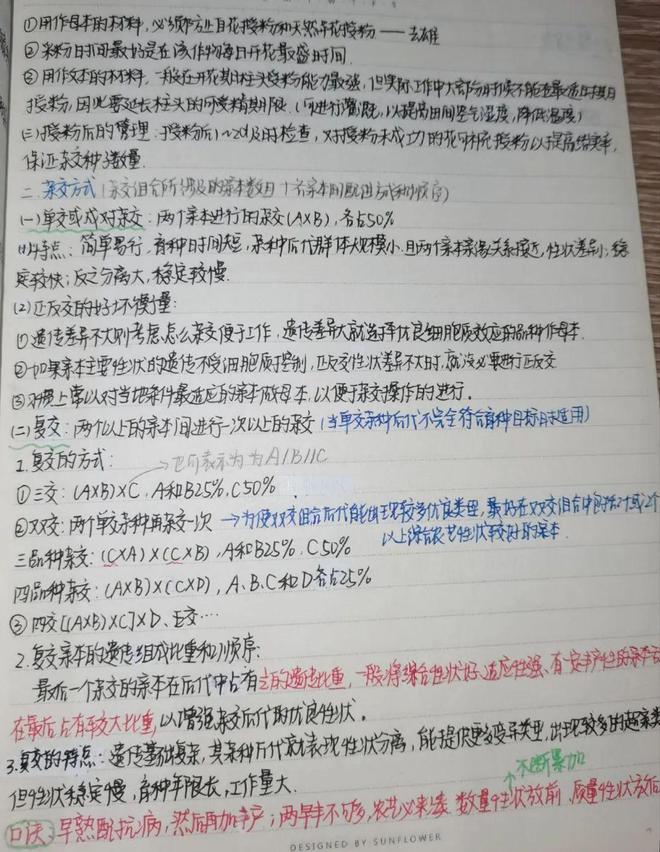 ①用作母本的材料，必须防止自花授粉和天然异花授粉——去雄
②采粉时间最好是在该作物每日开花最盛时间.
③用作父本的材料，一般在开花期柱头受粉能力最强，但实际工作中大部分时候不能在最适时期
授粉，因此要延长柱头的可受精期限.（可进行灌溉，以提高田间空气湿度，降低温度）
(三)授粉后的管理：授粉后1~2d及时检查，对授粉未成功的花补充授粉以提高结实率，
保证杂交种子数量.
二.杂交方式（杂交组合所涉及的亲本数目、各亲本间配组方式和顺序）
(一)单交或成对杂交：两个亲本进行的杂交(A×B)，各占50%
(1)特点：简单易行，育种时间短，杂种后代群体规模小.且两个亲本亲缘关系接近，性状差别小，稳
定较快；反之分离大，稳定较慢.
(2)正反交的好坏衡量：
①遗传差异不大则考虑怎么杂交便于工作，遗传差异大就选择优良细胞质效应的品种作母本.
②如果亲本主要性状的遗传不受细胞质控制，正反交性状差异不大时，就没必要进行正反交
③习惯上常以对当地条件最适应的亲本做母本，以便于杂交操作的进行.
(二)复交：两个以上的亲本间进行一次以上的杂交（当单交杂种后代不完全符合育种目标时适用）
1.复交的方式：→也可表示为为A/B//C
①三交：(A×B)×C，A和B25%，C50%
②双交：两个单交杂种再杂交一次 →为使双交组合后代能出现较多优良类型，最好在双交组合中包括1个或2个
以上综合农艺性状较好的亲本
三品种杂交：(C×A)×(C×B)，A和B25%，C50%
四品种杂交：(A×B)×(C×D)，A、B、C和D各占25%
③四交[(A×B)×C]×D、五交…
2.复交亲本的遗传组成比重和顺序：
最后一个杂交的亲本在后代中占有 的遗传比重，一般将综合性状好、适应性强、有一定丰产性的亲本
在最后占有较大比重，以增强杂交后代的优良性状.
3.复交的特点：遗传基础复杂，其杂种后代就表现性状分离，能提供更多变异类型，出现较多的超亲类
但性状稳定慢，育种年限长，工作量大.
不断累加
口诀：早熟配抗病，然后再加丰产；两早丰不够，农艺必来凑 数量性状放前，质量性状放后
DESIGNED BY SUNFLOWER